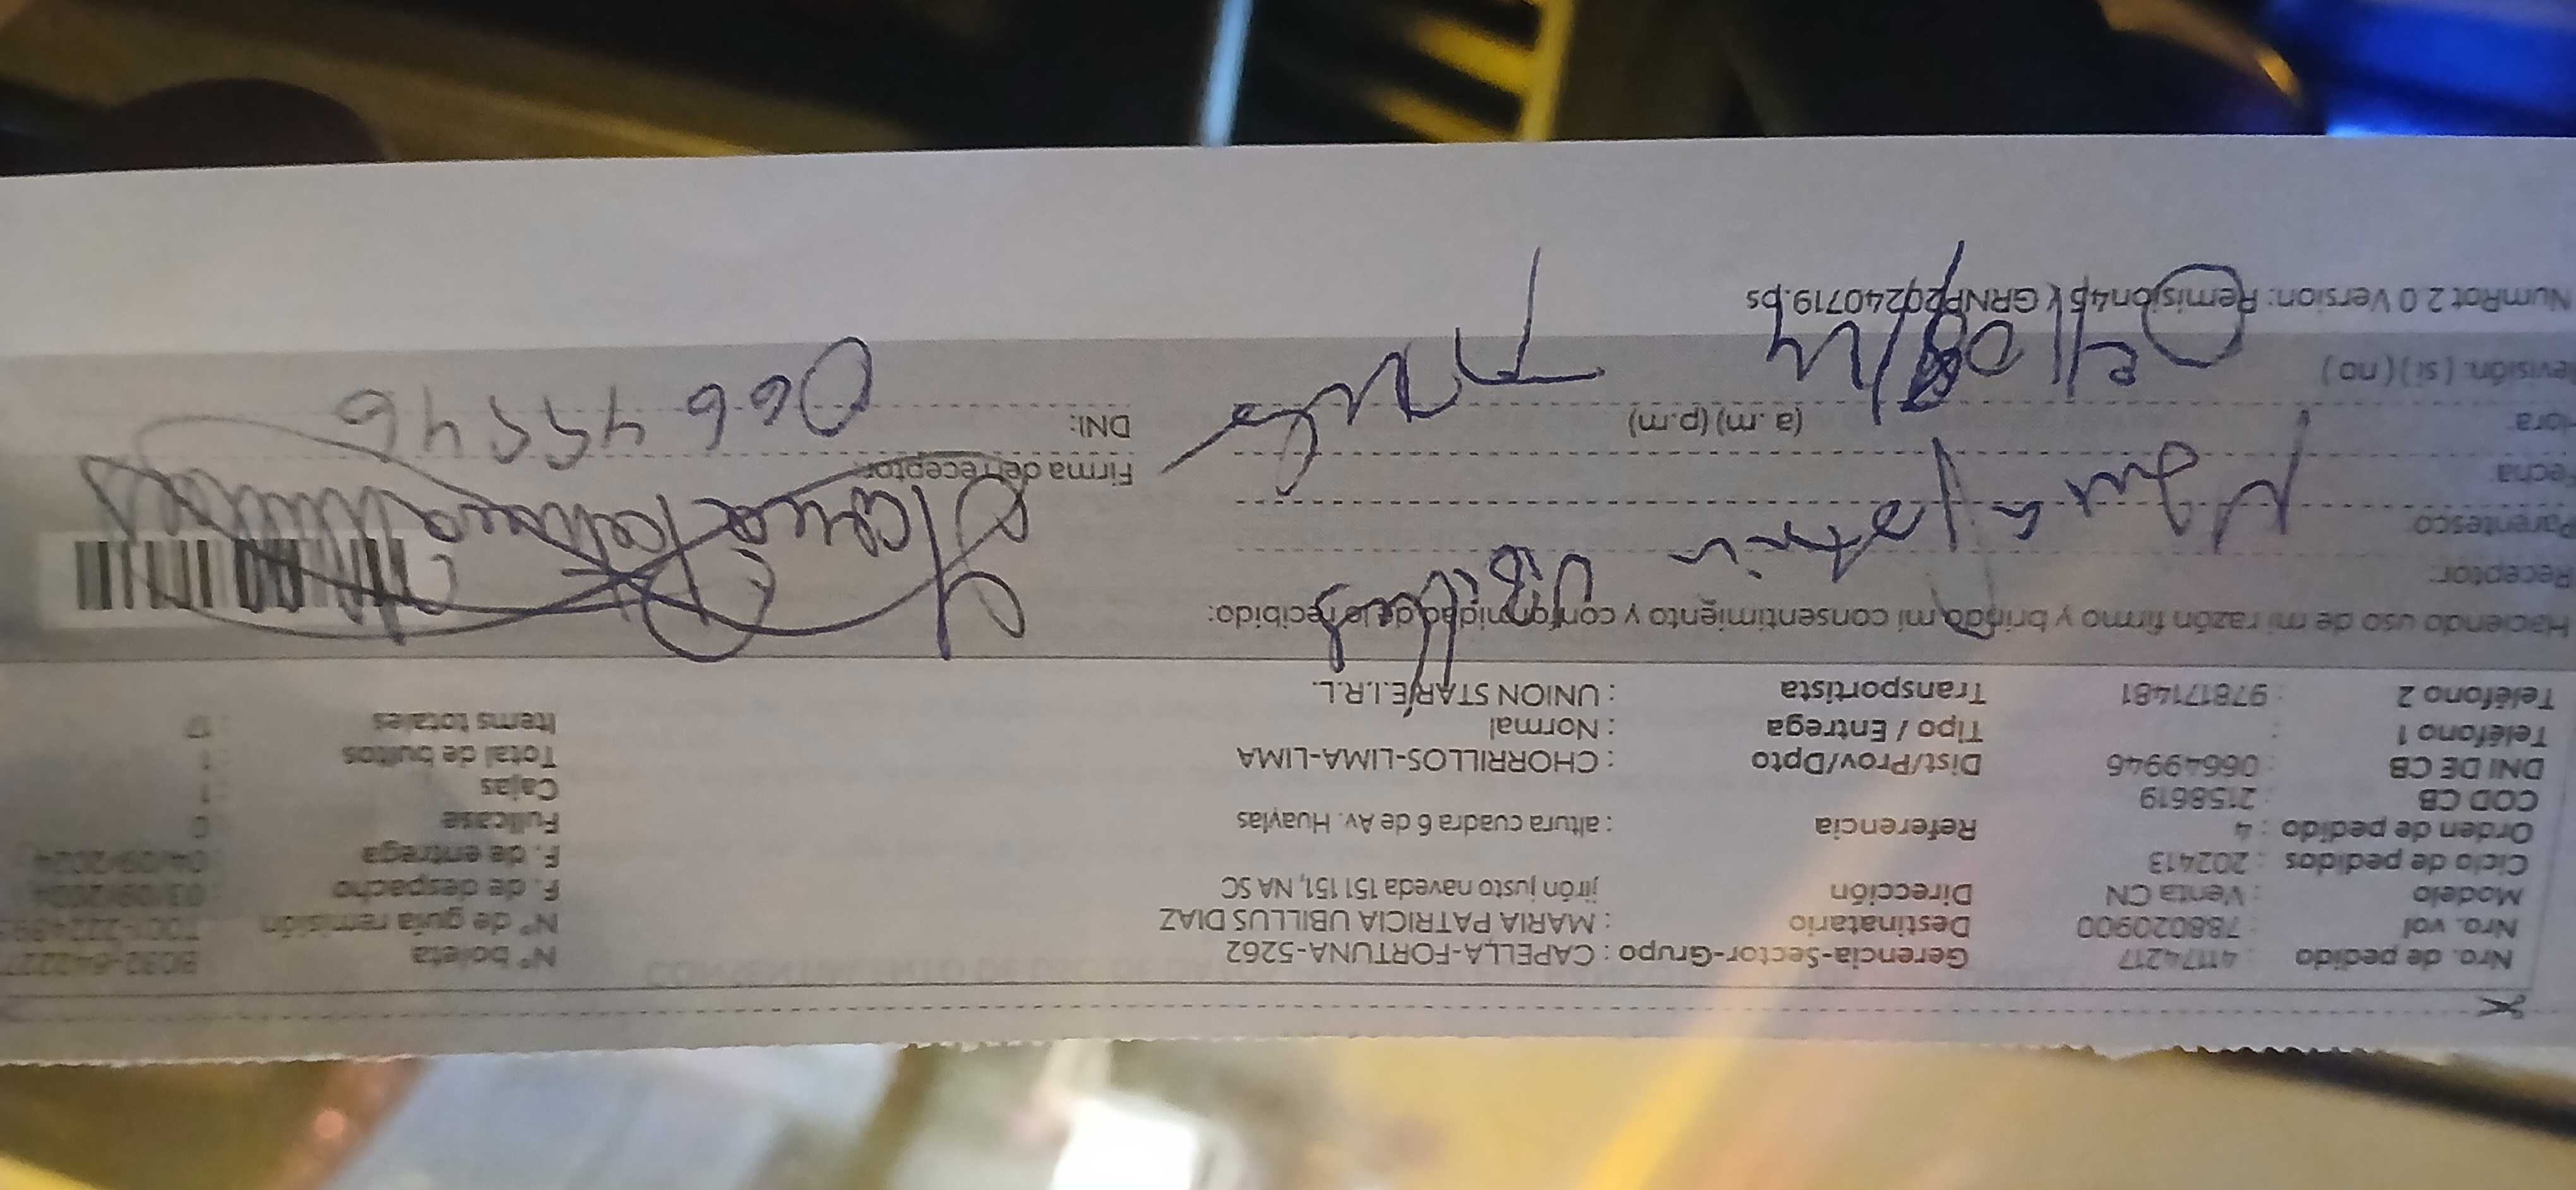 Nro. de pedido : 41174217 Gerencia-Sector-Grupo : CAPELLA-FORTUNA-5262 N° boleta
Nro. vol : 788020900 Destinatario : MARIA PATRICIA UBILLUS DIAZ N° de guía remisión
Modelo : Venta CN Dirección jirón justo naveda 151 151, NA SC F. de despacho : 03/09/2024
Ciclo de pedidos : 202413 F. de entrega : 04/09/2024
Orden de pedido : 4 Referencia : altura cuadra 6 de Av. Huaylas Fullcase : 0
COD CB : 2158619 Cajas : 1
DNI DE CB : 06649946 Dist/Prov/Dpto : CHORRILLOS-LIMA-LIMA Total de bultos : 1
Teléfono 1 : Tipo / Entrega : Normal Items totales : 17
Teléfono 2 : 978171481 Transportista : UNION STAR E.I.R.L.
Haciendo uso de mi razón firmo y brindo mi consentimiento y conformidad de lo recibido:
Receptor: Ubillus
Parentesco
Fecha
Firma de receptor:
Hora (a.m) (p.m) DNI:
Revisión: ( si ) ( no )
NumRot 2.0 Version: Remision45 ( GRNP20240719.ps